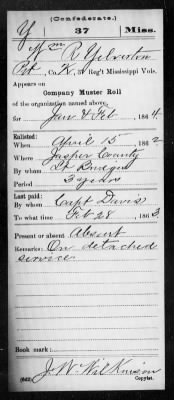 (Confederate.)
Y 37 Miss.
Wm R Yelverton
Pvt, Co. K, 37 Reg't Mississippi Vols.
Appears on
Company Muster Roll
of the organization named above,
for Jan & Feb, 1864.
Enlisted:
When April 15, 1862
Where Jasper County
By whom Lt Bridges
Period 3 years
Last paid:
By whom Capt Davis
To what time Feb 28, 1863
Present or absent Absent
Remarks: On detached
service
Book mark:
J. W. Wilkinson
(642) Copyist.